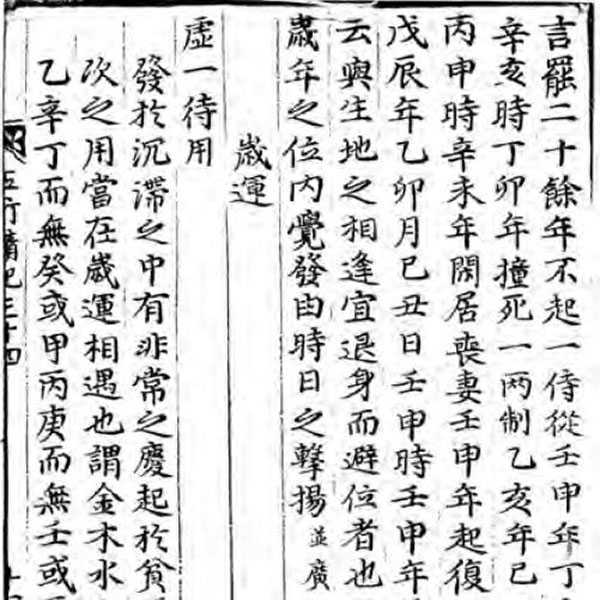 言罷二十餘年不起一侍從壬申年丁
辛亥時丁卯年撞死一两制乙亥年己
丙申時辛未年閑居喪妻壬申年起復
戊辰年乙卯月己丑日壬申時壬申年
云與生地之相逢宜退身而避位者也
歲年之位内覺發由時日之擊揚並廣
歲運
虛一待用
發於沉滯之中有非常之慶起於貧
次之用當在歲運相遇也謂金木水
乙辛丁而無癸或甲丙庚而無壬或
五行精紀三十四